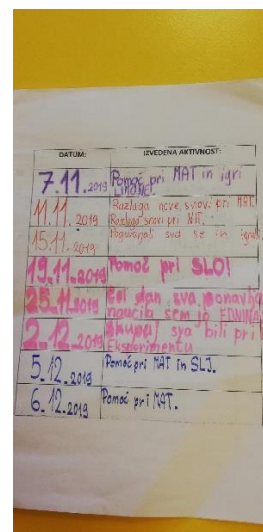 DATUM: IZVEDENA AKTIVNOST:
7.11.2019 Pomoč pri MAT in igri
11.11.2019 Razlaga nove snovi pri MAT.
Razlaga snovi pri NIT.
15.11.2019 Pogovarjali sva se in igrali
19.11.2019 Pomoč pri SLO!
25.11.2019 Cel dan sva ponavljali
naučila sem jo
2.12.2019 Skupaj sva bili pri
Eksperimentu
5.12.2019 Pomoč pri MAT in SLJ.
6.12.2019 Pomoč pri MAT.